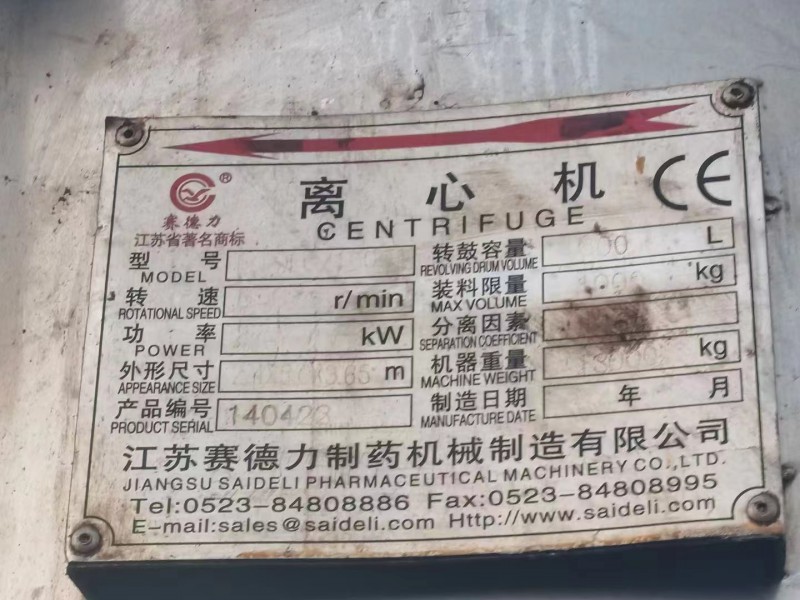 离心机 CE
CENTRIFUGE
®
赛德力
江苏省著名商标
型号
MODEL
转速 r/min
ROTATIONAL SPEED
功率 kW
POWER
外形尺寸 m
APPEARANCE SIZE
产品编号
PRODUCT SERIAL
转鼓容量 L
REVOLVING DRUM VOLUME
装料限量 kg
MAX VOLUME
分离因素
SEPARATION COEFFICIENT
机器重量 kg
MACHINE WEIGHT
制造日期 年 月
MANUFACTURE DATE
江苏赛德力制药机械制造有限公司
JIANGSU SAIDELI PHARMACEUTICAL MACHINERY CO.,LTD.
Tel:0523-84808886 Fax:0523-84808995
E-mail:sales@saideli.com Http://www.saideli.com